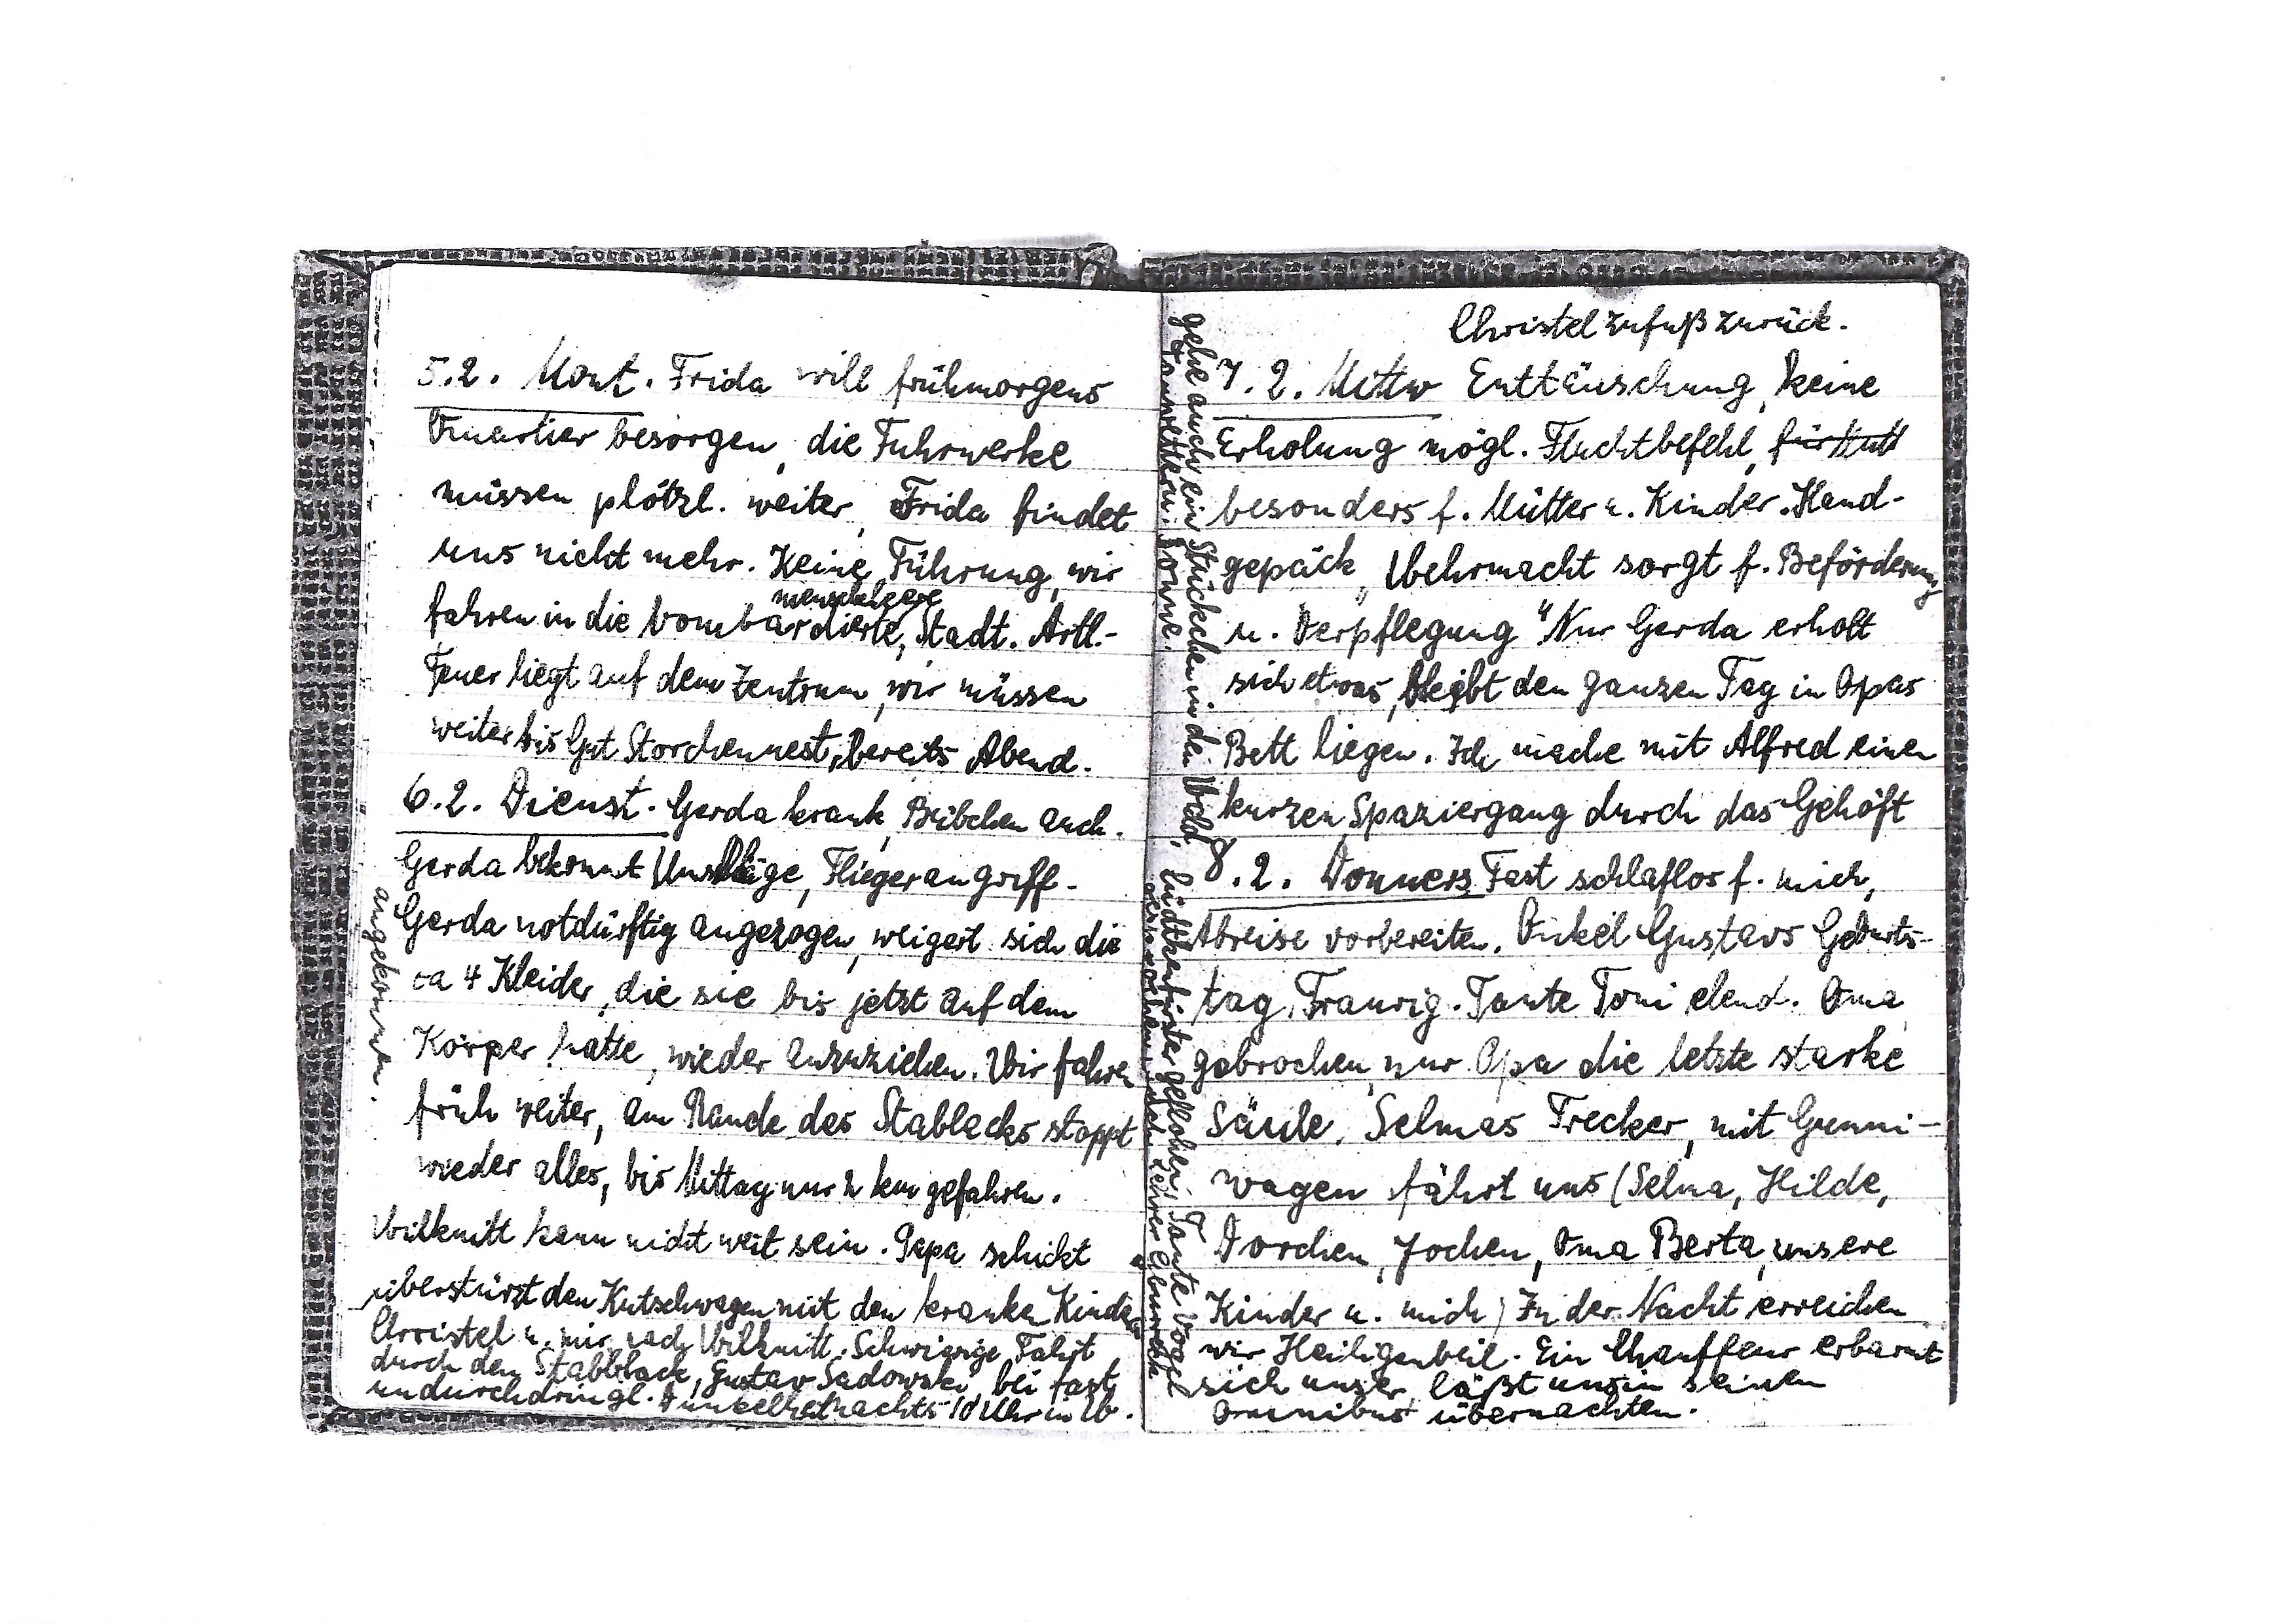 5.2. Mont. Frida will frühmorgens
Quartier besorgen, die Fuhrwerke
müssen plötzl. weiter, Frida findet
uns nicht mehr. Keine Führung, wir
menschleere
fahren in die bombardierte, Stadt. Artl.-
Feuer liegt auf dem Zentrum, wir müssen
weiter bis Gut Storchennest, bereits Abend.
6.2. Dienst. Gerda krank, Bübchen auch.
Gerda bekommt Umschläge, Fliegerangriff.
Gerda notdürftig angezogen, weigert sich die
ca 4 Kleider, die sie bis jetzt auf dem
Körper hatte, wieder anzuziehen. Wir fahren
früh weiter, am Rande des Stablacks stoppt
wieder alles, bis Mittag nur 2 km gefahren.
Wilknitt kann nicht weit sein. Papa schickt
überstürzt den Kutschwagen mit den kranken Kindern
Christel u. mir nach Wilknitt. Schwierige Fahrt
durch den Stabblack, Gustav Sadowski, bei fast
undurchdringl. Dunkelheit nachts 10 Uhr in W.
angekommen.
Christel zufuß zurück.
7.2. Mittw Enttäuschung, keine
Erholung mögl. Fluchtbefehl, für Mütt
besonders f. Mütter u. Kinder. Hand-
gepäck, „Wehrmacht sorgt f. Beförderung
u. Verpflegung" Nur Gerda erholt
sich etwas, bleibt den ganzen Tag in Opas
Bett liegen. Ich mache mit Alfred einen
kurzen Spaziergang durch das Gehöft
gehe auch ein Stückchen in den Wald,
Tauwetter: Sonne.
8.2. Donners Fast schlaflos f. mich,
Abreise vorbereiten. Onkel Gustavs Geburts-
tag. Traurig. Tante Toni elend. Oma
gebrochen, nur Opa die letzte starke
Säule. Selmas Trecker, mit Gummi-
wagen fährt uns (Selma, Hilde,
Dorchen, Jochen, Oma Berta, unsere
Kinder u. mich) In der Nacht erreichen
wir Heiligenbeil. Ein Chauffeur erbarmt
sich unser, läßt uns in seinen
Omnibus übernachten.
geflohen, Tante Vogel
Lehrer